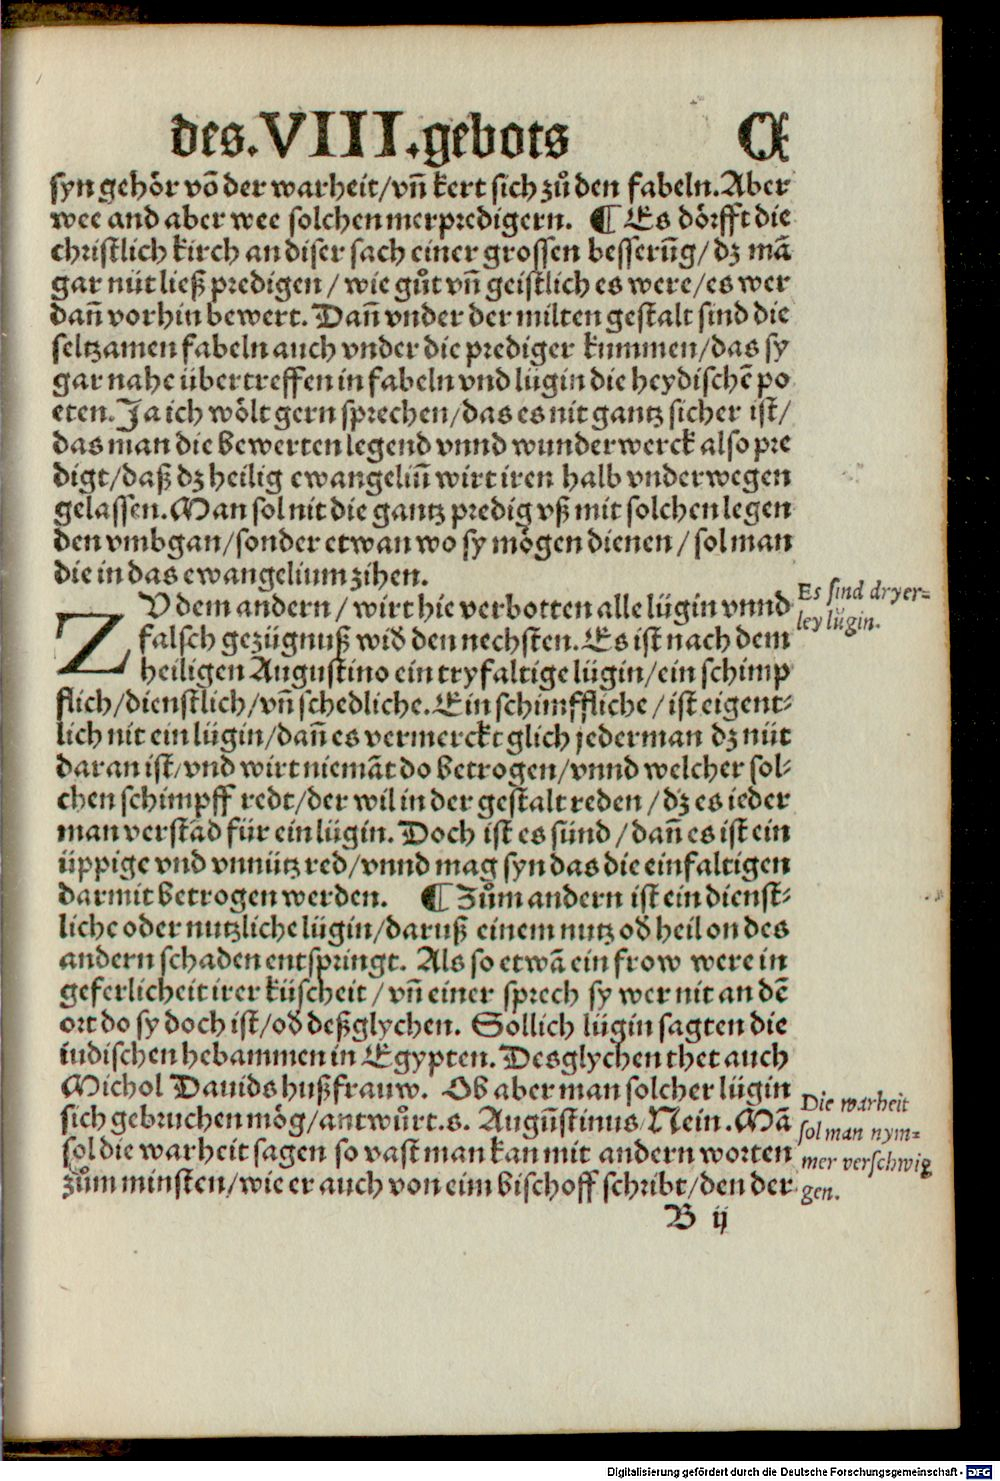 des.VIII.gebots
syn gehör võ der warheit/vñ kert sich zů den fabeln.Aber
wee and aber wee solchen merpredigern. ¶ Es dörfft die
christlich kirch an diser sach einer grossen besserũg/ dz mã
gar nüt ließ predigen / wie gůt vñ geistlich es were/es wer
dañ vorhin bewert. Dañ vnder der milten gestalt sind die
seltzamen fabeln auch vnder die prediger kummen/das sy
gar nahe übertreffen in fabeln vnd lügin die heydischẽ po
eten.Ja ich wölt gern sprechen/das es nit gantz sicher ist/
das man die bewerten legend vnnd wunderwerck also pre
digt/daß dz heilig ewangeliũ wirt iren halb vnderwegen
gelassen.Man sol nit die gantz predig vß mit solchen legen
den vmbgan/sonder etwan wo sy mögen dienen / sol man
die in das ewangelium zihen.
ZV dem andern / wirt hie verbotten alle lügin vnnd
falsch gezügnuß wiđ den nechsten. Es ist nach dem
heiligen Augustino ein tryfaltige lügin/ein schimp
flich/dienstlich/vñ schedliche.Ein schimffliche / ist eigent⸗
lich nit ein lügin/dañ es vermerckt glich jederman dz nüt
daran ist/vnd wirt niemãt do betrogen/vnnd welcher sol⸗
chen schimpff redt/der wil in der gestalt reden / dz es ieder
man verstãd für ein lügin. Doch ist es sünd / dañ es ist ein
üppige vnd vnnütz red/vnnd mag syn das die einfaltigen
darmit betrogen werden. ¶ Zům andern ist ein dienst⸗
liche oder nutzliche lügin/daruß einem nutz ođ heil on des
andern schaden entspringt. Als so etwã ein frow were in
geferlicheit irer küscheit / vñ einer sprech sy wer nit an dẽ
ort do sy doch ist/ođ deßglychen. Sollich lügin sagten die
iudischen hebammen in Egypten. Desglychen thet auch
Michol Dauids hußfrauw. Ob aber man solcher lügin
sich gebruchen mög/antwůrt.s. Augũstinus/Nein.Mã
sol die warheit sagen so vast man kan mit andern worten
zům minsten/wie er auch von eim bischoff schribt/den der
B ij
Es sind dryer⸗
ley lügin.
Die warheit
sol man nym⸗
mer verschwig
gen.
Digitalisierung gefördert durch die Deutsche Forschungsgemeinschaft - DFG